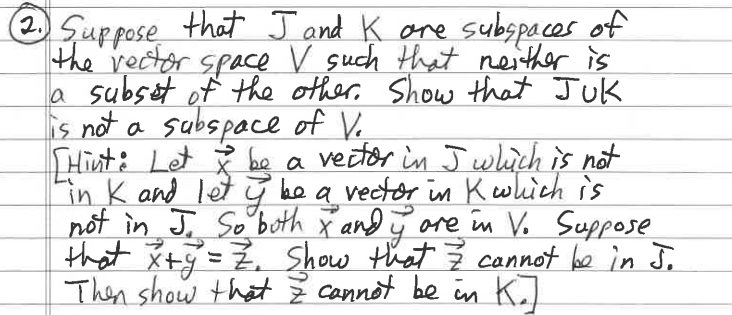 2. Suppose that J and K are subspaces of
the vector space V such that neither is
a subset of the other. Show that J∪K
is not a subspace of V.
[Hint: Let x⃗ be a vector in J which is not
in K and let y⃗ be a vector in K which is
not in J. So both x⃗ and y⃗ are in V. Suppose
that x⃗+y⃗ = z⃗. Show that z⃗ cannot be in J.
Then show that z⃗ cannot be in K.]